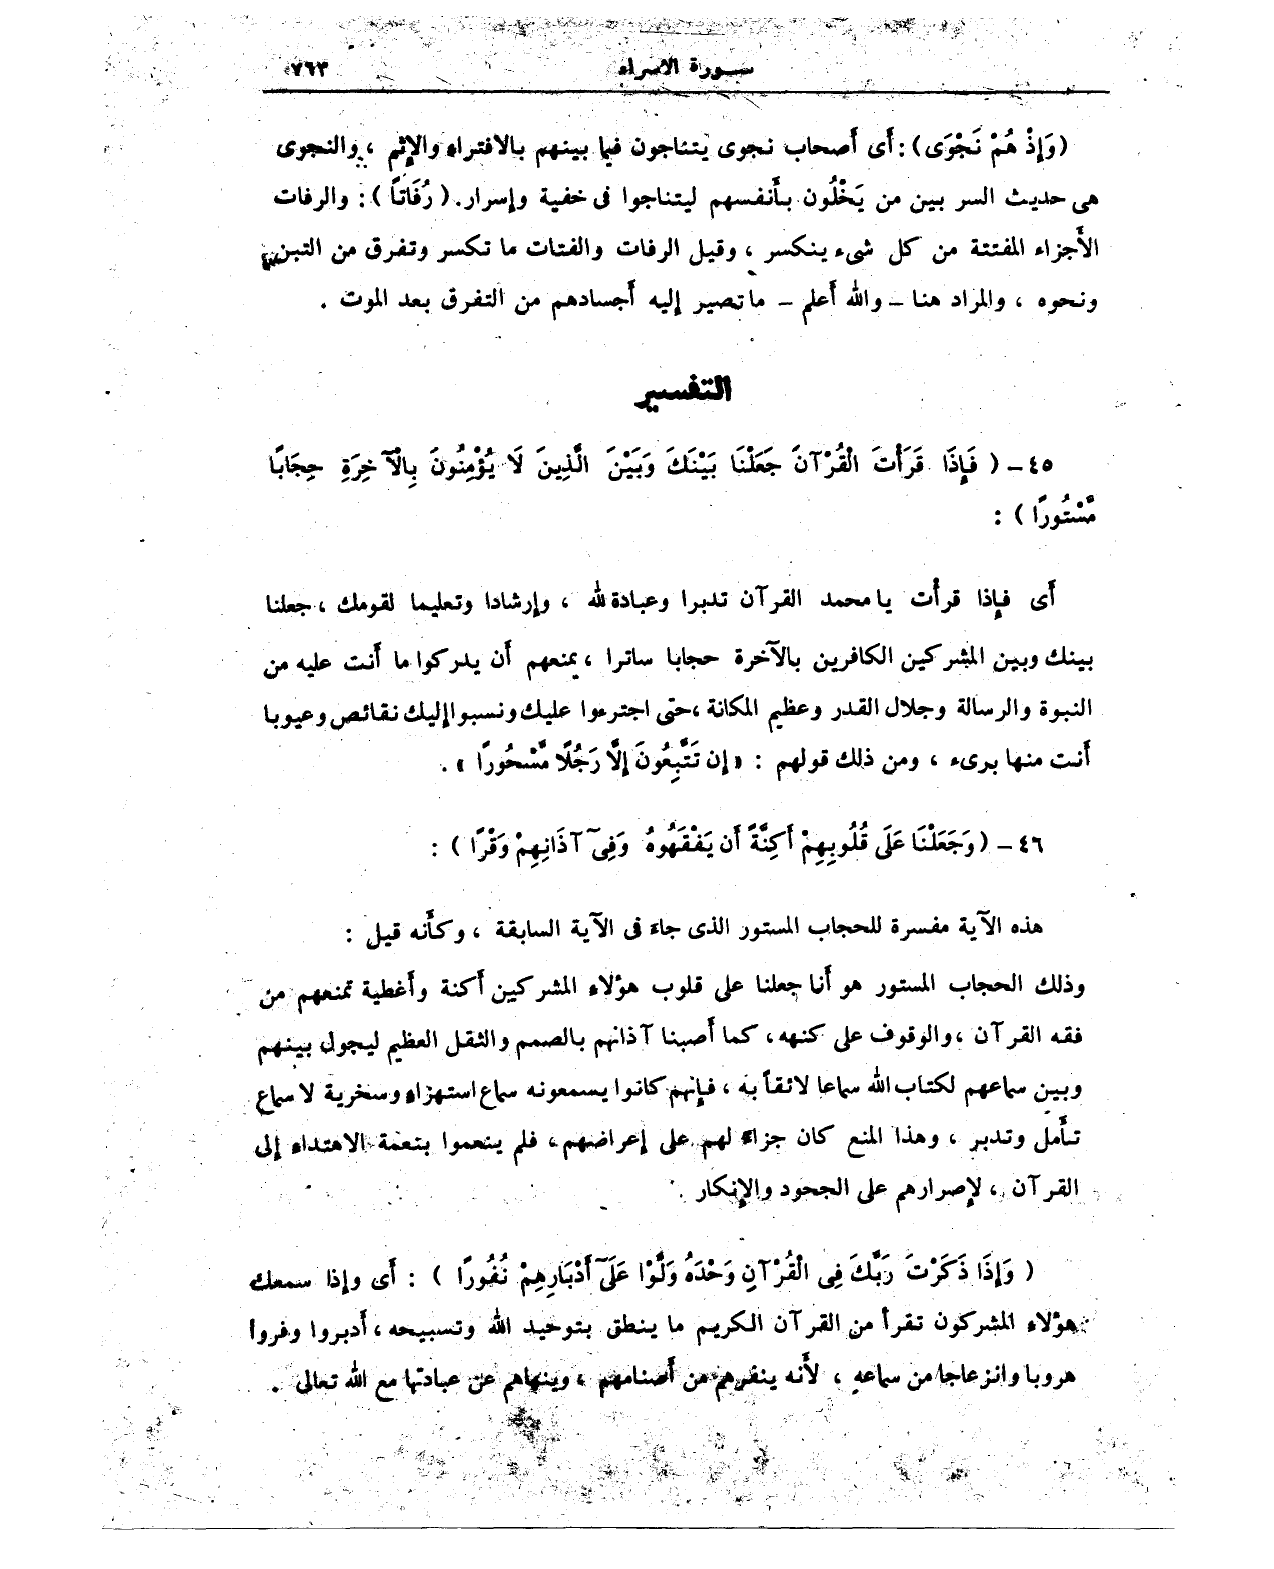 سورة الاسراء ٧٦٣
(وَإِذْ هُمْ نَجْوَى) : أَى أَصحاب نجوى يتناجون فيما بينهم بالافتراء والإثم ، والنجوى
هى حديث السر بين من يَخْلُون بأَنفسهم ليتناجوا فى خفية وإسرار. (رُفَاتاً) : والرفات
الأَجزاء المفتتة من كل شىء ينكسر ، وقيل الرفات والفتات ما تكسر وتفرق من التبن
ونحوه ، والمراد هنا – والله أَعلم – ما تصير إليه أَجسادهم من التفرق بعد الموت .
التفسير
٤٥ – ( فَإِذَا قَرَأْتَ الْقُرْآنَ جَعَلْنَا بَيْنَكَ وَبَيْنَ الَّذِينَ لَا يُؤْمِنُونَ بِالْآخِرَةِ حِجَابًا
مَّسْتُورًا ) :
أَى فإذا قرأْت يا محمد القرآن تدبرا وعبادة لله ، وإرشادا وتعليما لقومك ، جعلنا
بينك وبين المشركين الكافرين بالآخرة حجابا ساترا ، يمنعهم أَن يدركوا ما أَنت عليه من
النبوة والرسالة وجلال القدر وعظيم المكانة ،حتى اجترءوا عليك ونسبوا إليك نقائص وعيوبا
أَنت منها برىء ، ومن ذلك قولهم : « إِن تَتَّبِعُونَ إِلَّا رَجُلًا مَّسْحُورًا » .
٤٦ – (وَجَعَلْنَا عَلَى قُلُوبِهِمْ أَكِنَّةً أَن يَفْقَهُوهُ وَفِىٓ آذَانِهِمْ وَقْرًا ) :
هذه الآية مفسرة للحجاب المستور الذى جاء فى الآية السابقة ، وكأَنه قيل :
وذلك الحجاب المستور هو أَنا جعلنا على قلوب هؤلاء المشركين أَكنة وأَغطية تمنعهم من
فقه القرآن ، والوقوف على كنهه ، كما أَصبنا آذانهم بالصمم والثقل العظيم ليحول بينهم
وبين سماعهم لكتاب الله سماعا لائقاً به ، فإنهم كانوا يسمعونه سماع استهزاء وسخرية لا سماع
تأَمل وتدبر ، وهذا المنع كان جزاء لهم على إعراضهم ، فلم ينعموا بنعمة الاهتداء إلى
القرآن ، لإصرارهم على الجحود والإنكار .
( وَإِذَا ذَكَرْتَ رَبَّكَ فِى الْقُرْآنِ وَحْدَهُ وَلَّوْا عَلَىٓ أَدْبَارِهِمْ نُفُورًا ) : أَى وإذا سمعك
هؤلاء المشركون تقرأ من القرآن الكريم ما ينطق بتوحيد الله وتسبيحه ، أَدبروا وفروا
هروبا وانزعاجا من سماعه ، لأَنه ينفرهم من أَصنامهم ، وينهاهم عن عبادتها مع الله تعالى .